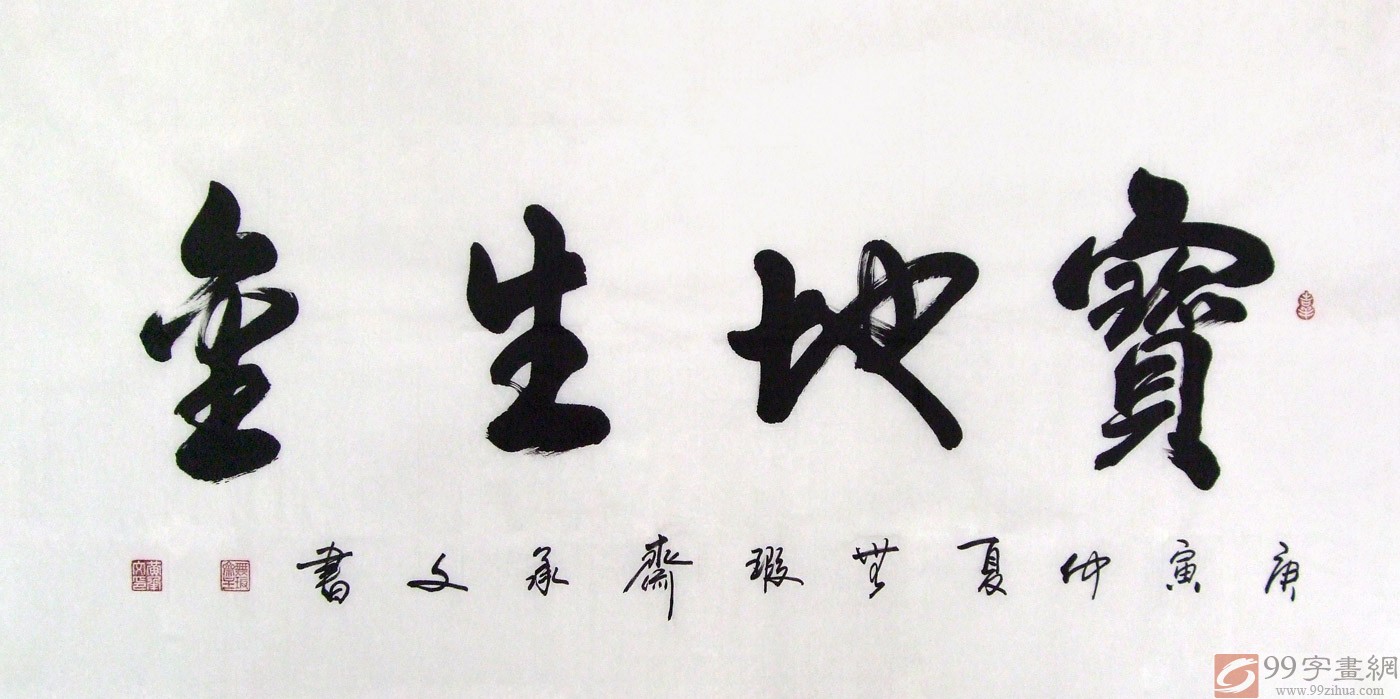 寶地生金
庚寅仲夏無瑕齋承文書
99字畫網
www.99zihua.com